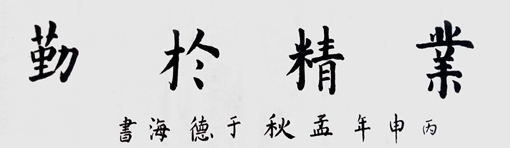 業精於勤
丙申年孟秋于德海書